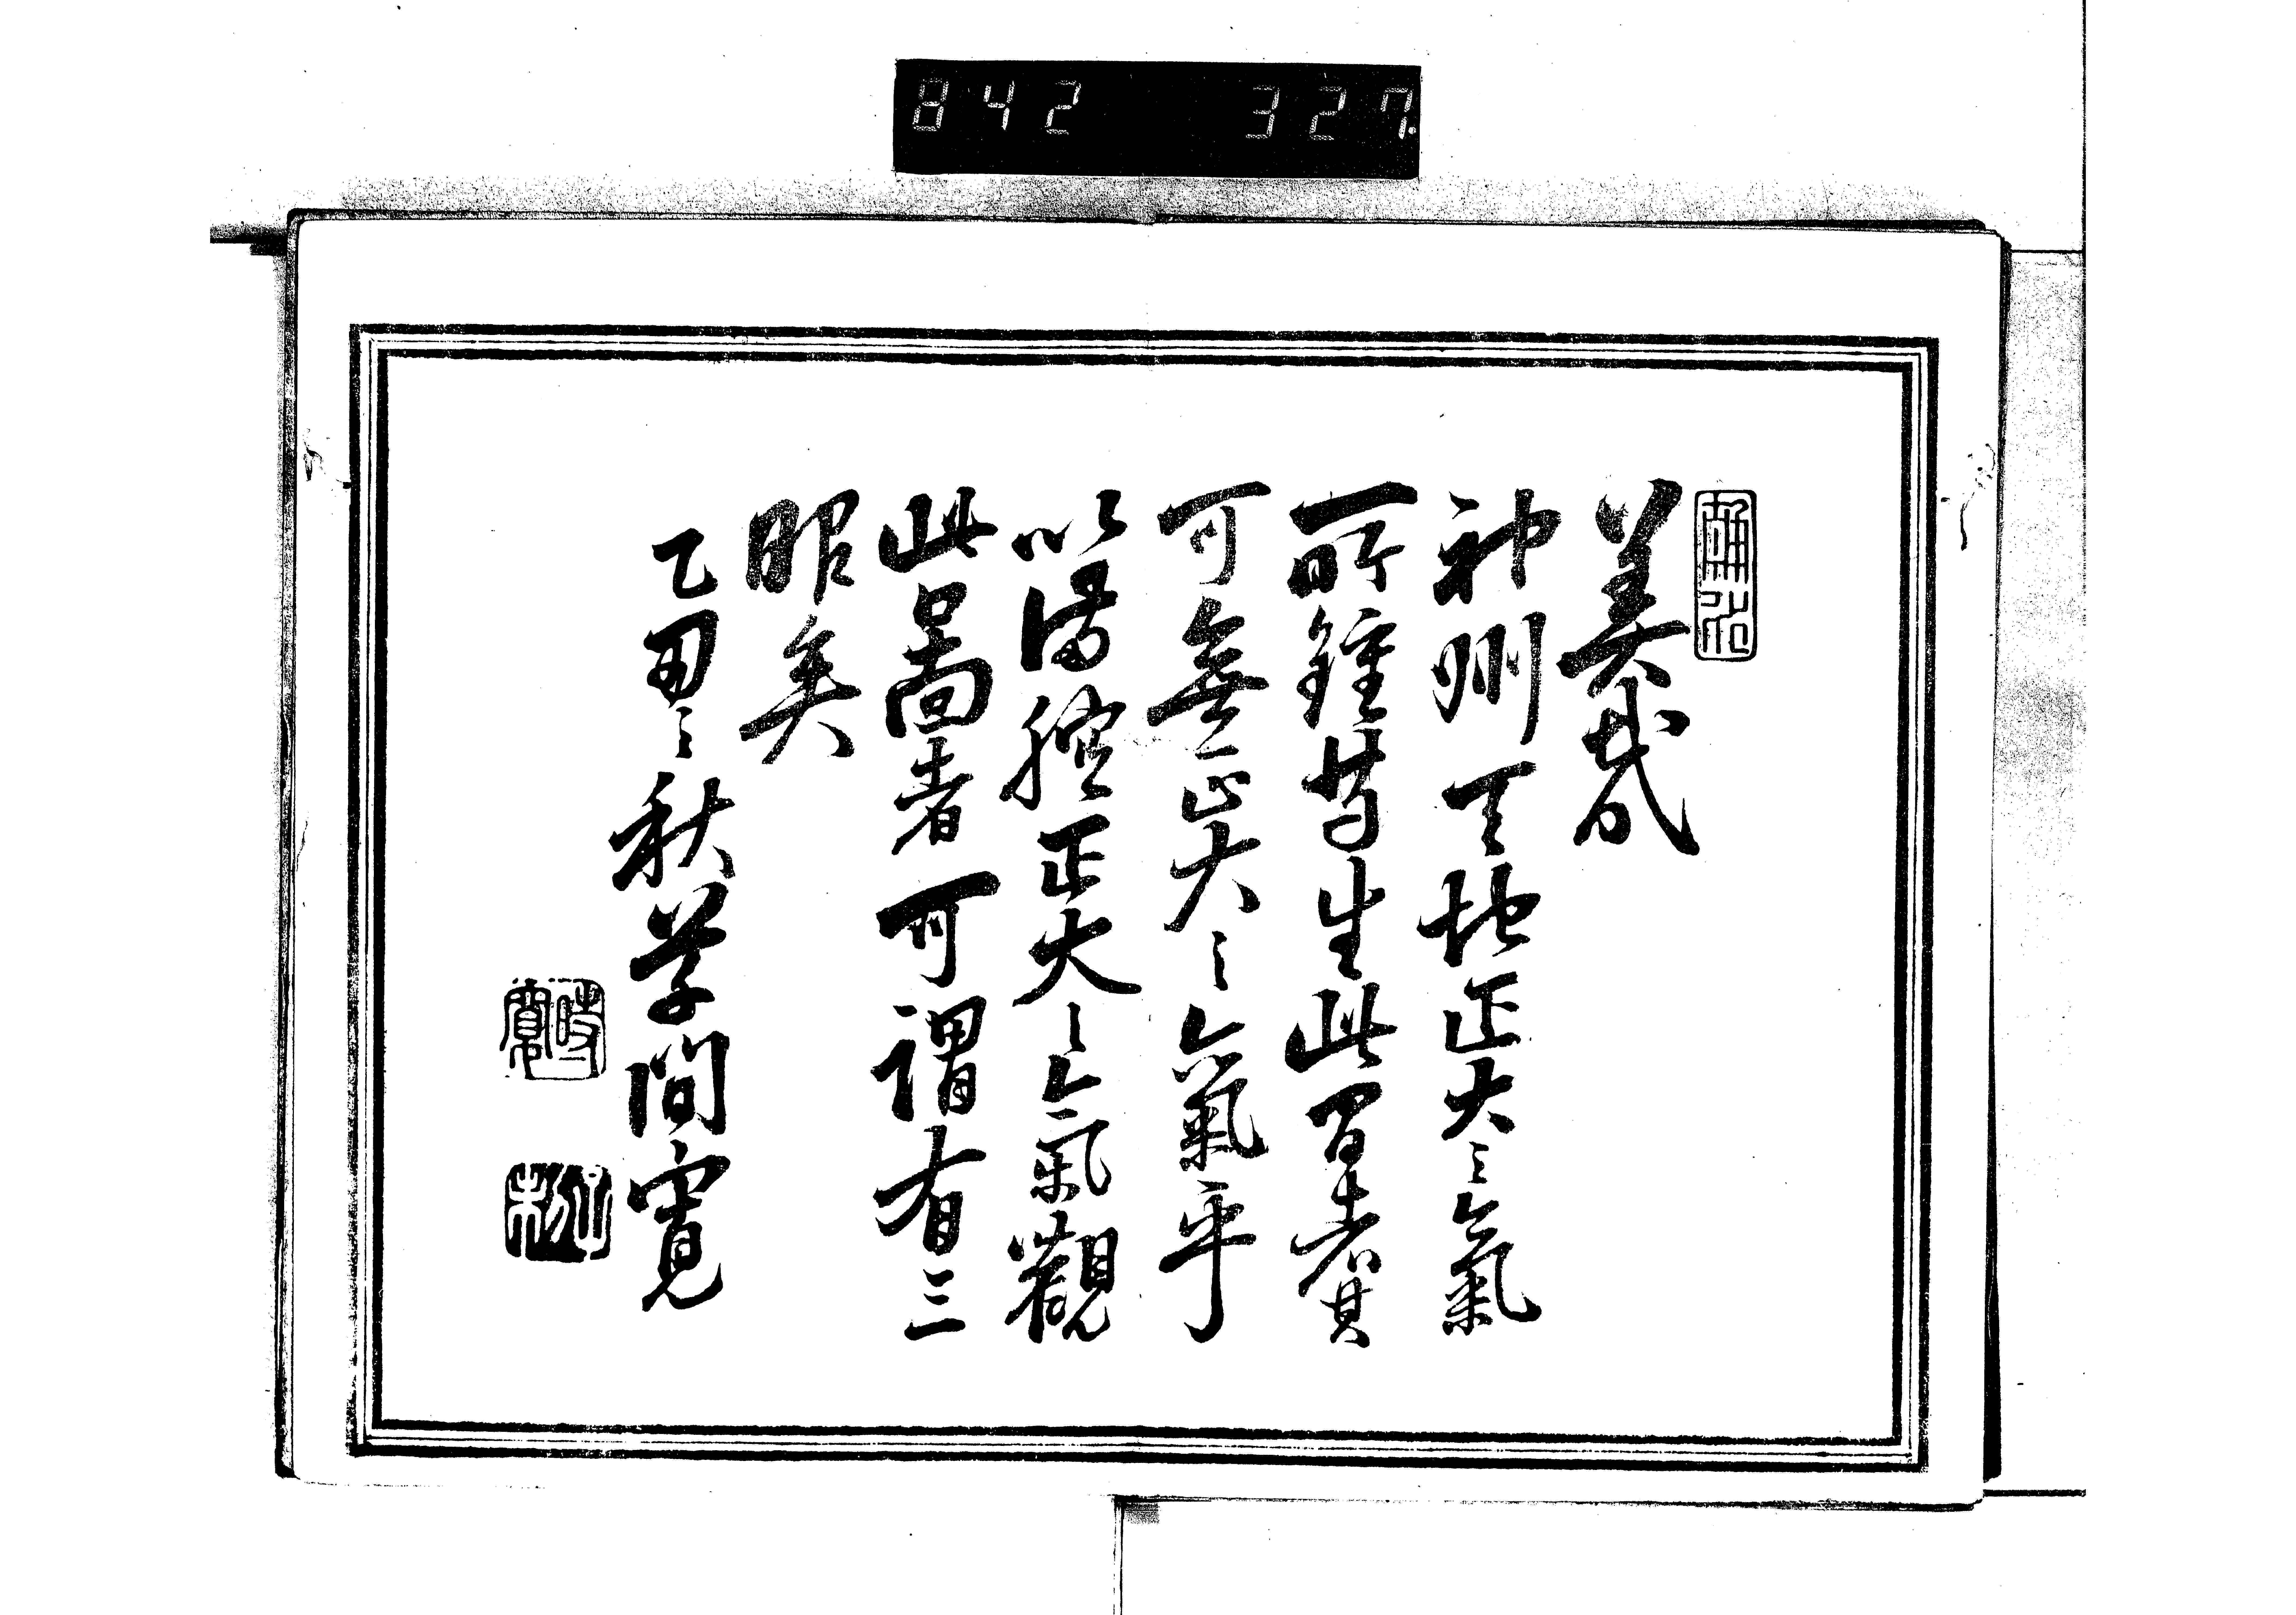 842 327
美哉
神州天地正大之氣
所鍾苟生此間者其
可無正大之氣乎
以満腔正大之氣觀
此啚者可謂有三
眼矣
乙丑之秋草間寛